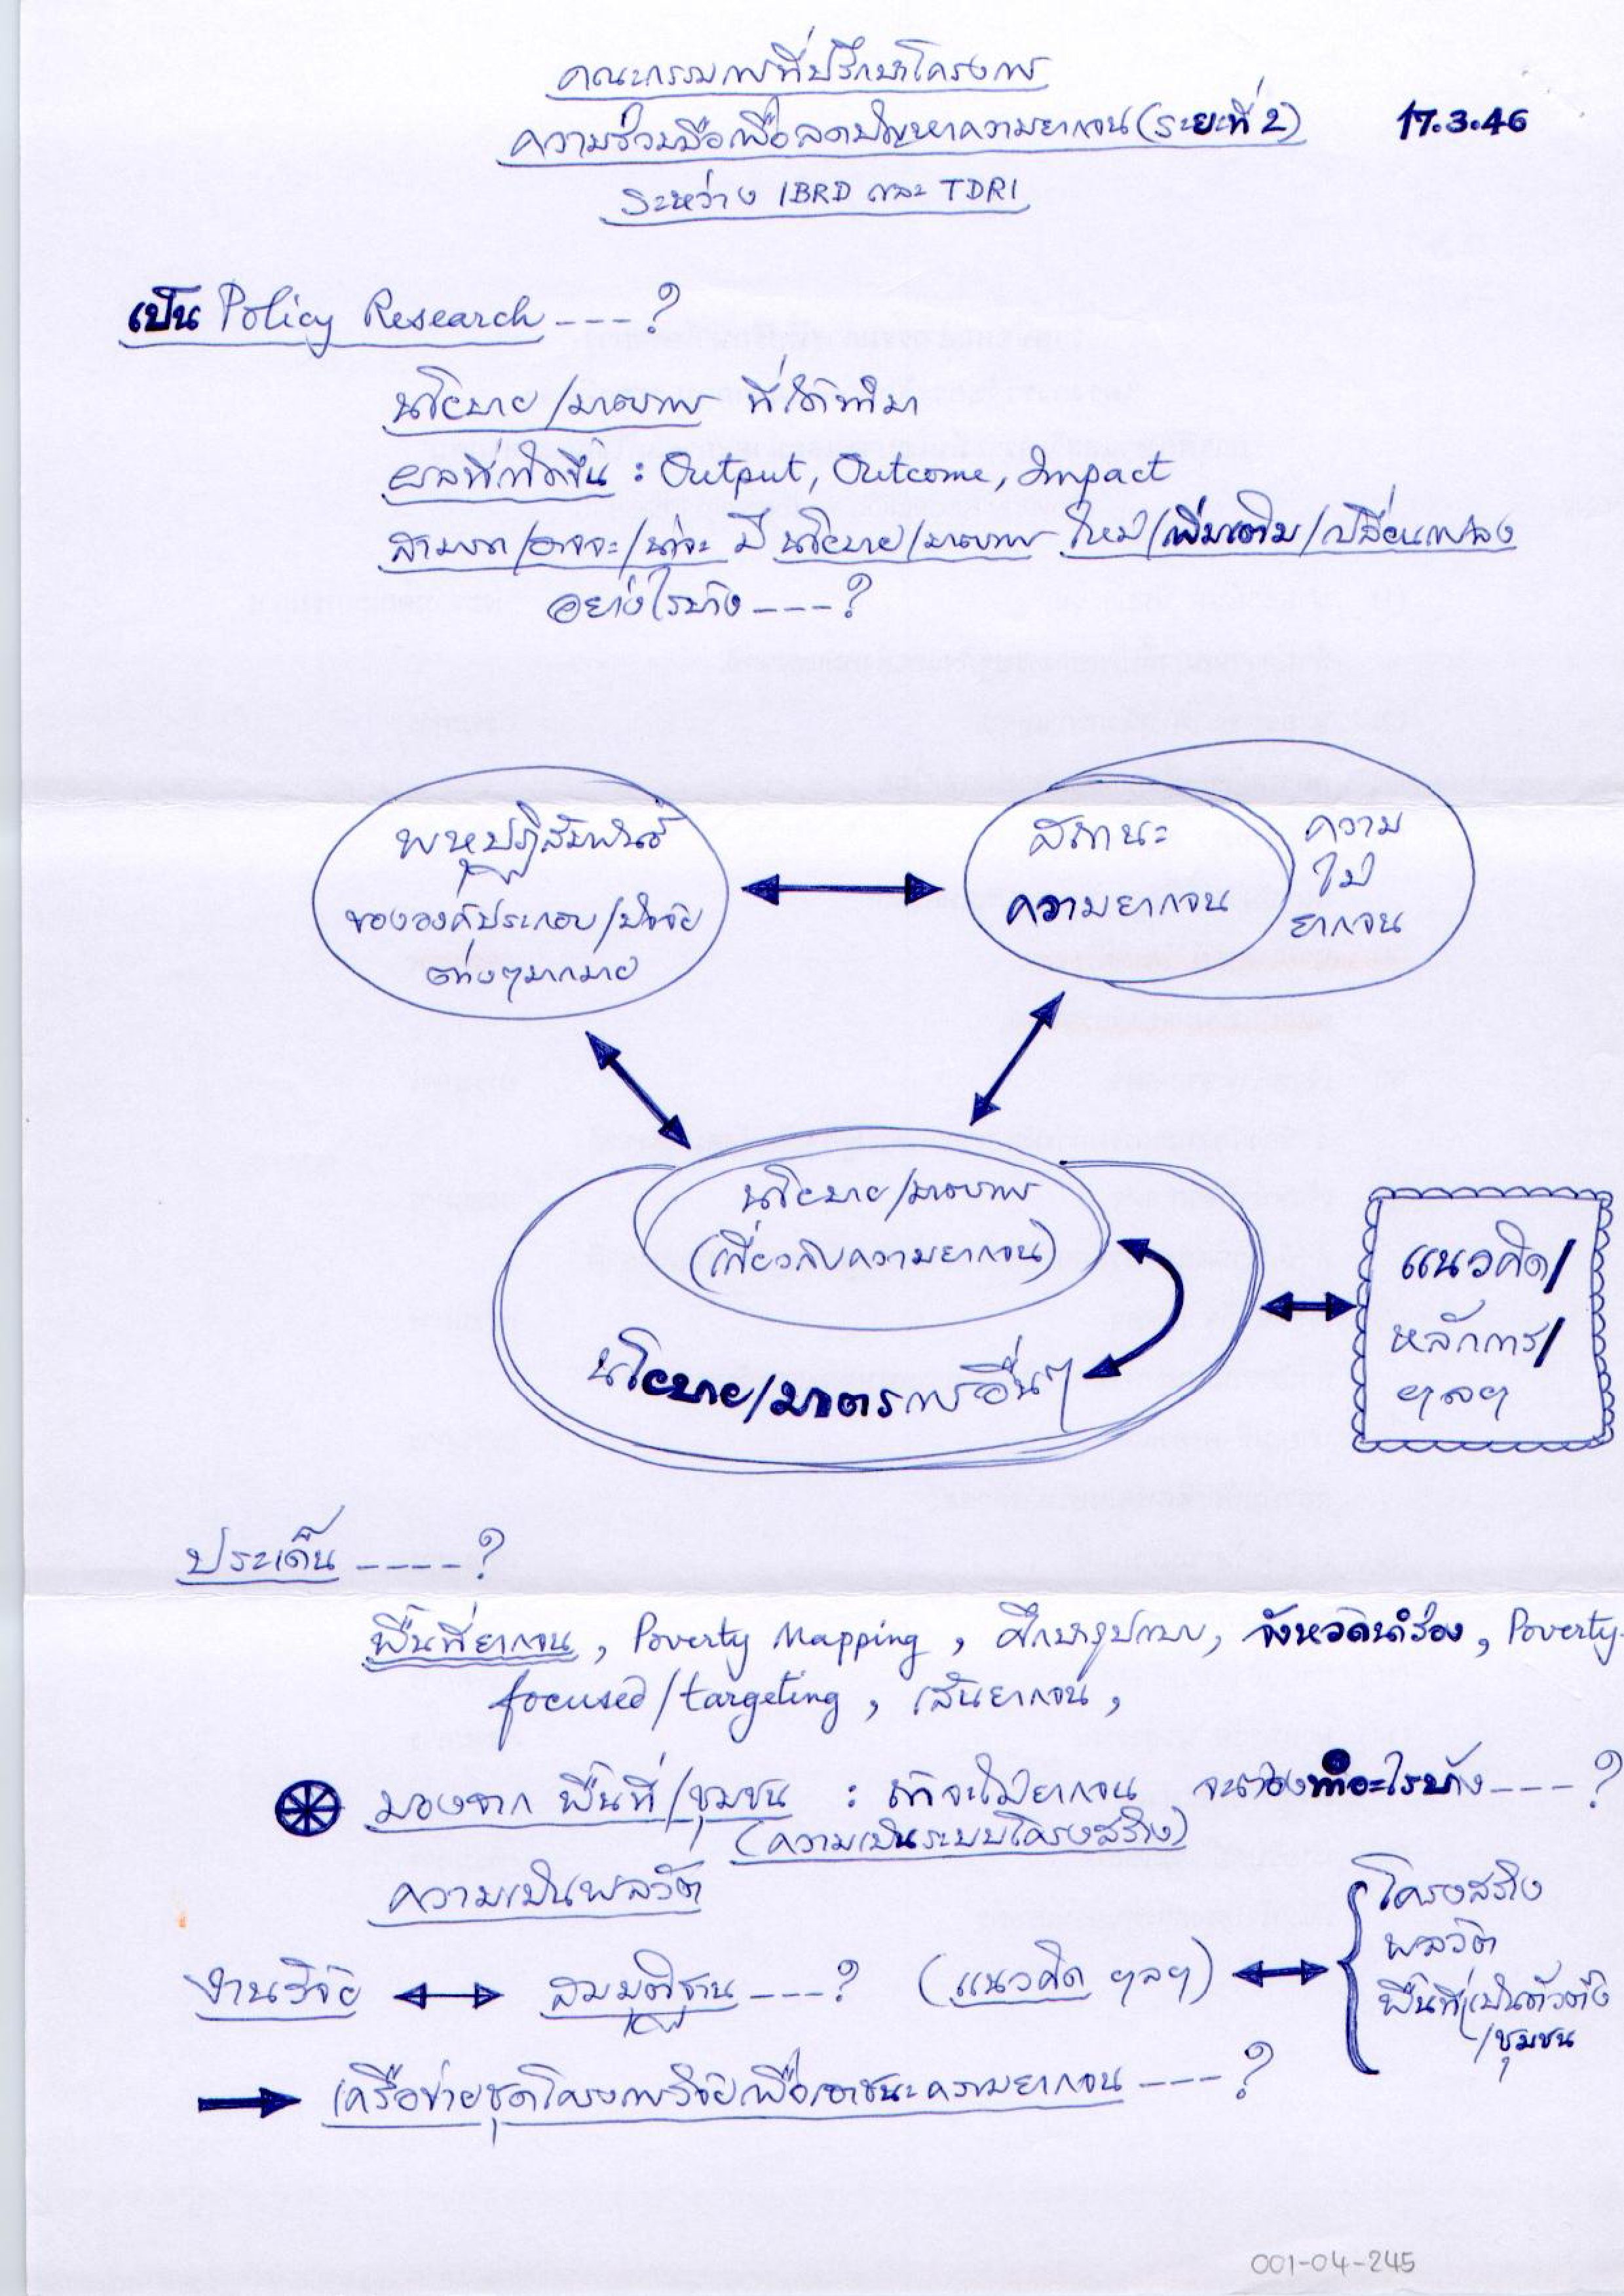 คณะกรรมการที่ปรึกษาโครงการ
ความร่วมมือเพื่อลดปัญหาความยากจน (ระยะที่ 2)
17.3.46
ระหว่าง IBRD และ TDRI
เป็น Policy Research ---?
นโยบาย/มาตรการ ที่ได้ทำมา
ผลที่เกิดขึ้น : Output, Outcome, Impact
สามารถ/อาจจะ/น่าจะ มี นโยบาย/มาตรการ ใหม่/เพิ่มเติม/เปลี่ยนแปลง
อย่างไรบ้าง ----?
พหุปฏิสัมพันธ์
ขององค์ประกอบ/ปัจจัย
ต่างๆมากมาย
สถานะ
ความยากจน
ความ
ไม่
ยากจน
นโยบาย/มาตรการ
(เกี่ยวกับความยากจน)
นโยบาย/มาตรการอื่นๆ
แนวคิด/
หลักการ/
ฯลฯ
ประเด็น ----?
พื้นที่ยากจน, Poverty Mapping, ศึกษารูปแบบ, จังหวัดนำร่อง, Poverty-
focused/targeting, เส้นยากจน,
มองจาก พื้นที่/ชุมชน : ถ้าจะไม่ยากจน จะต้องทำอะไรบ้าง ---?
(ความเป็นระบบโครงสร้าง)
ความเป็นพลวัต
งานวิจัย ↔ สมมุติฐาน ---? (แนวคิด ฯลฯ) ↔
โครงสร้าง
พลวัต
พื้นที่เป็นตัวตั้ง
/ชุมชน
→ เครือข่ายชุดโครงการวิจัยเพื่อเอาชนะความยากจน ---?
001-04-245